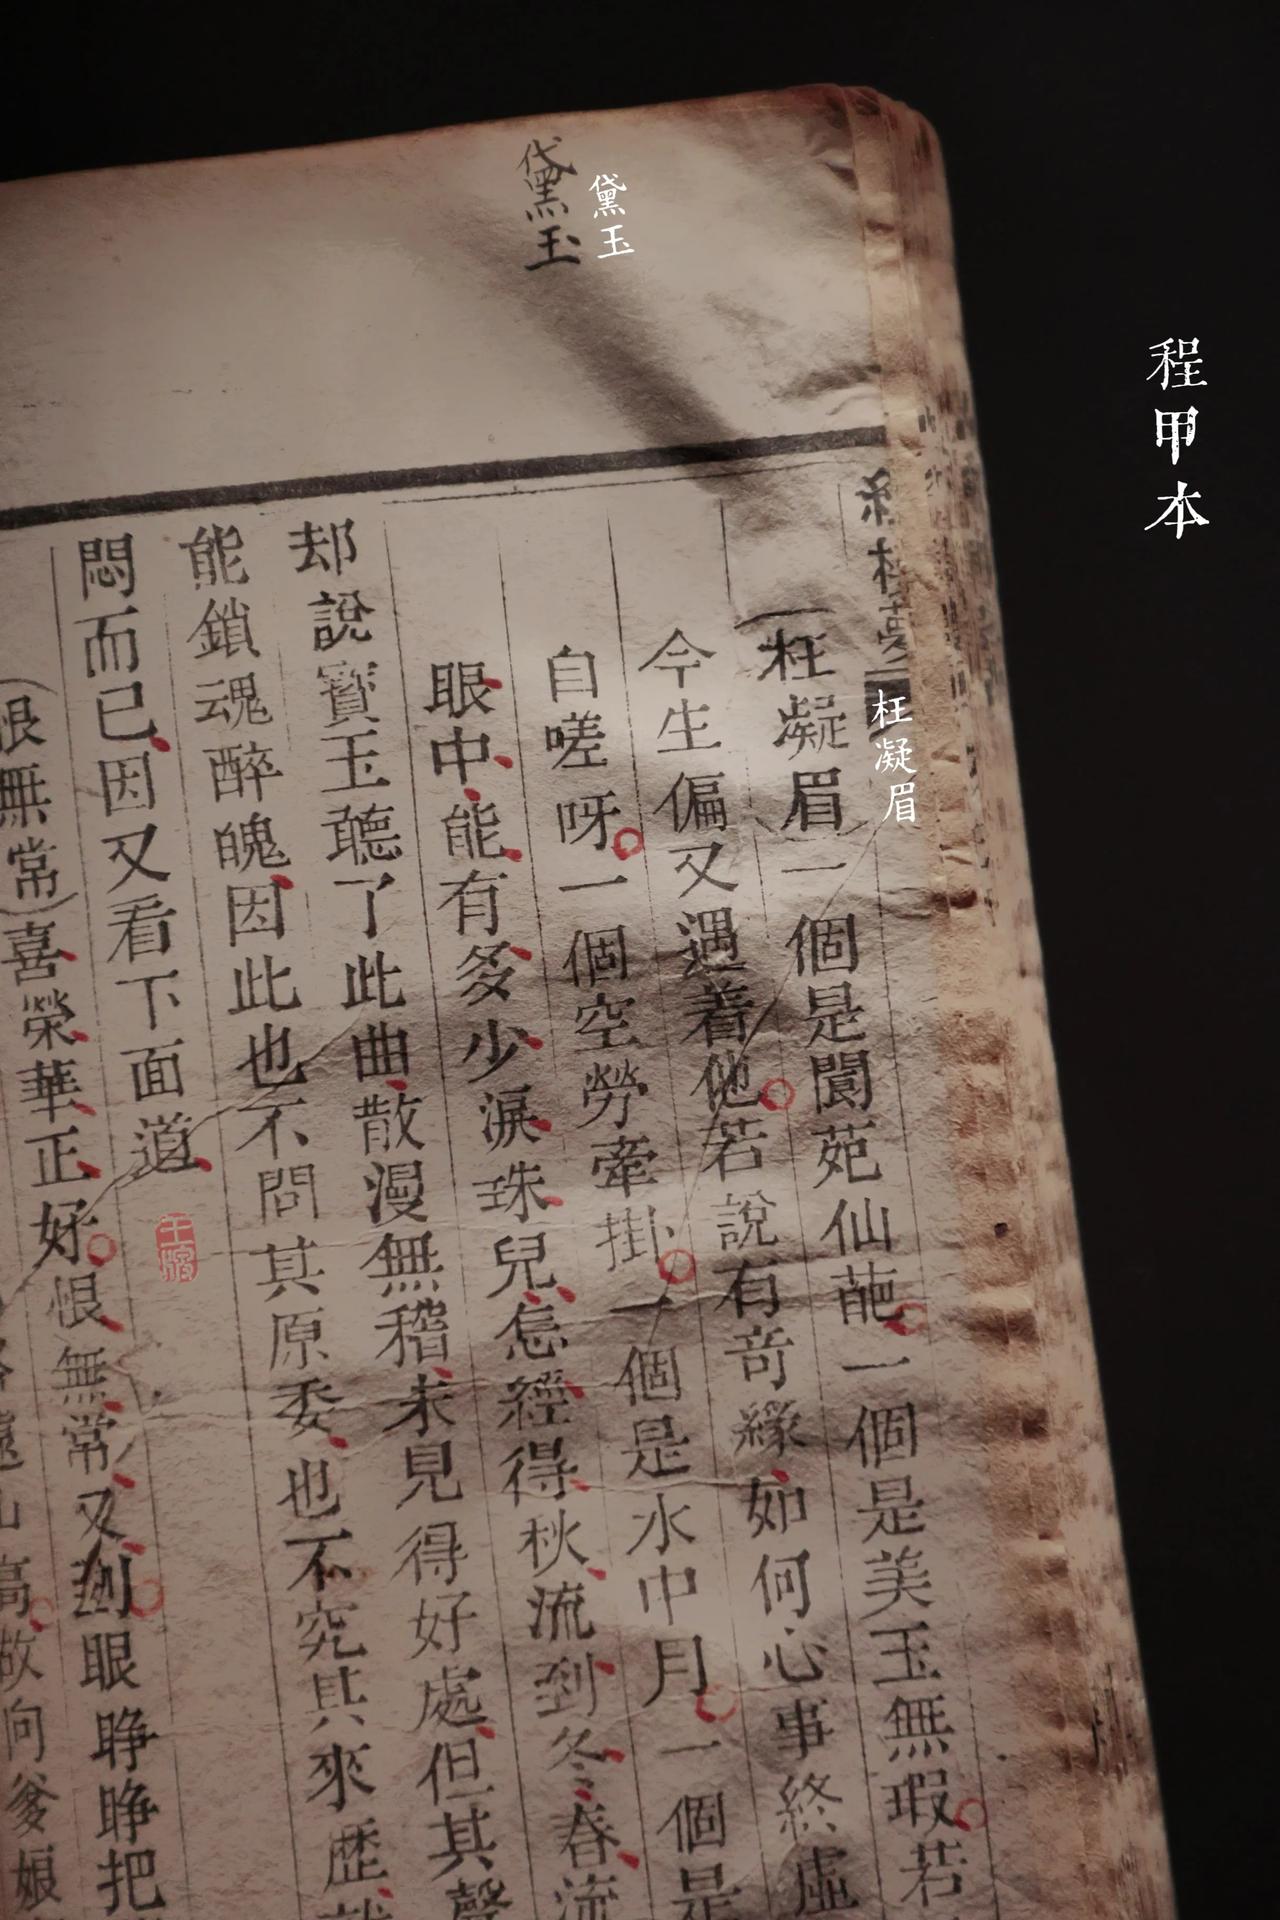 程甲本
黛玉
黛玉
紅樓夢
枉凝眉
（枉凝眉）一個是閬苑仙葩一個是美玉無瑕若
今生偏又遇着他若說有竒緣如何心事終虛
自嗟呀一個空勞牽掛一個是水中月一個是
眼中能有多少淚珠兒怎經得秋流到冬春流
却說寶玉聽了此曲散漫無稽未見得好處但其聲
能鎖魂醉魄因此也不問其原委也不究其來歷就
悶而已因又看下面道
（恨無常）喜榮華正好恨無常又到眼睜睜把
路遠山高故向爹娘